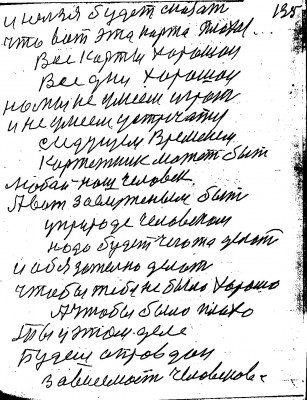 и нельзя будет сказат 135
что вот эта карта плохая
Все карты хорошои
Все дни хорошои
но мы не умеем играт
и не умеем устречатц
следущем Временем
Картежник может быт
любой наш человек
А вот заслуженым быт
у природе человеком
надо будет что та делат
и обязателно делат
чтобы тебе не было хорошо
А чтобы было плохо
Ты у этом деле
будеш оправдан
зависемост человеков